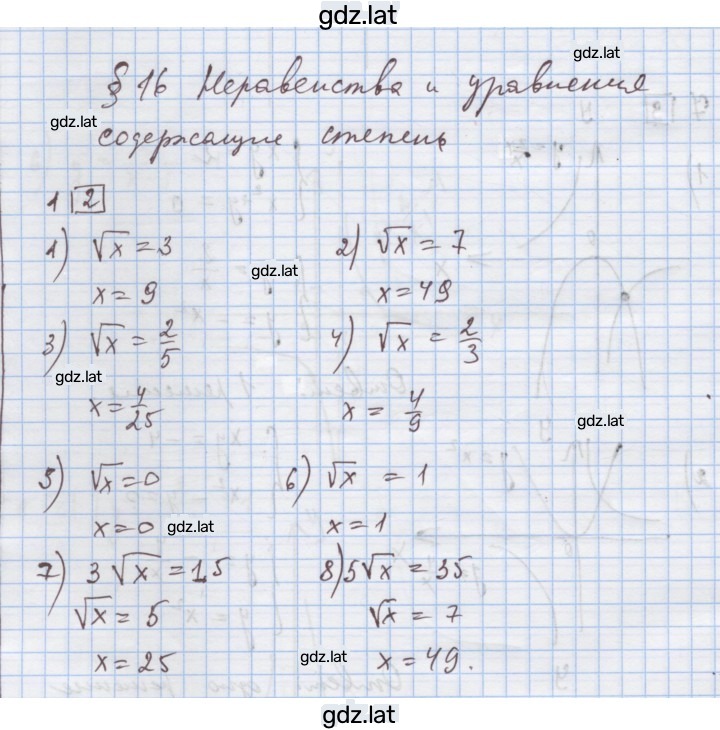 gdz.lat
gdz.lat
§ 16 Неравенства и уравнения
gdz.lat
содержащие степень
1 2
1) √x = 3 2) √x = 7
gdz.lat
x = 9 x = 49
3) √x = 2/5 4) √x = 2/3
gdz.lat
x = 4/25 x = 4/9
gdz.lat
5) √x = 0 6) √x = 1
x = 0 gdz.lat x = 1
7) 3√x = 15 8) 5√x = 35
√x = 5 √x = 7
x = 25 gdz.lat x = 49.
gdz.lat